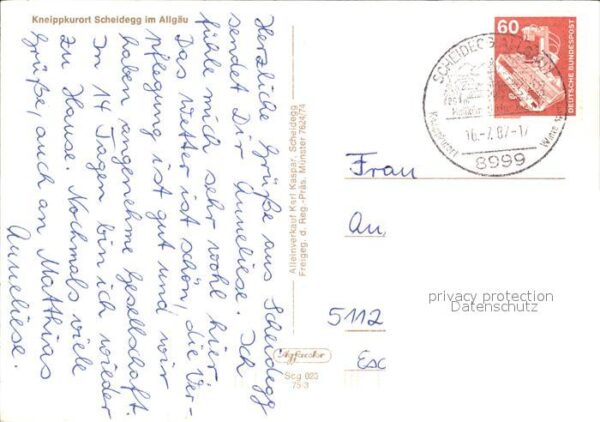 Kneippkurort Scheidegg im Allgäu
Herzliche Grüße aus Scheidegg
sendet Dir Anneliese. Ich
fühle mich sehr wohl hier
Das Wetter ist schön, die Ver-
pflegung ist gut und wir
haben angenehme Gesellschaft.
In 14 Tagen bin ich wieder
zu Hause. Nochmals viele
Grüße, auch an Matthias
Anneliese.
Alleinverkauf Karl Kaspar, Scheidegg
Freigeg. d. Reg.-Präs. Münster 7624/74
Agfacolor
Scg 023
75 3
60
DEUTSCHE BUNDESPOST
SCHEIDEGG
Kneippkurort
16.-7.87-17
8999
Frau
An
5112
Esc
privacy protection
Datenschutz